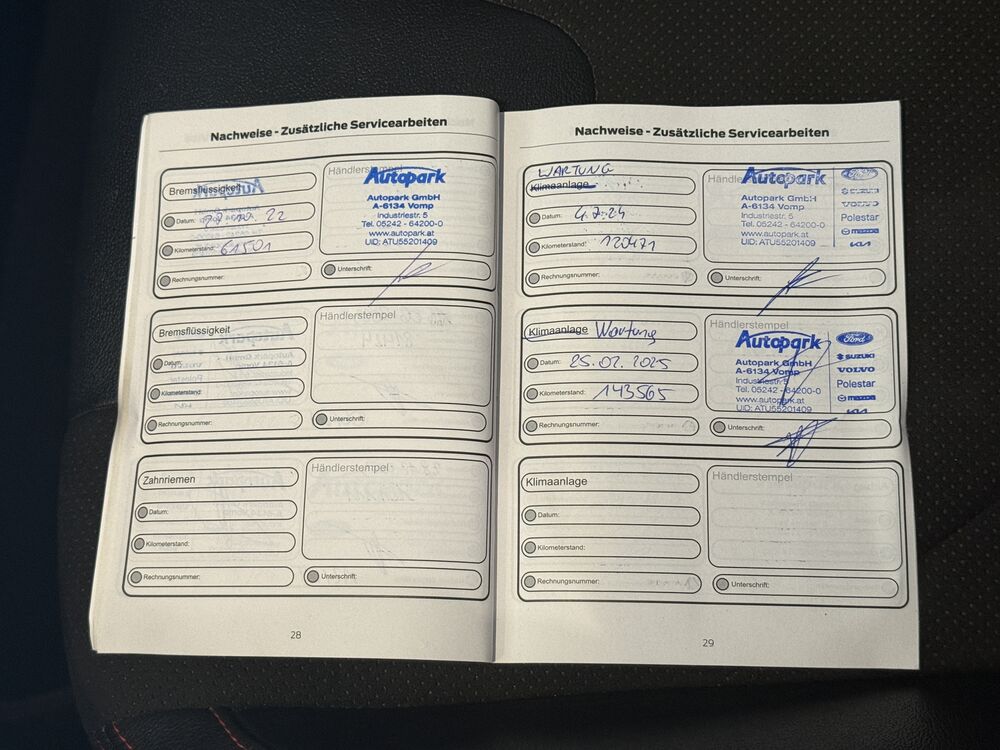 Nachweise - Zusätzliche Servicearbeiten
Bremsflüssigkeit
Datum: 22
Kilometerstand: 61501
Rechnungsnummer:
Händlerstempel
Autopark
Autopark GmbH
A-6134 Vomp
Industriestr. 5
Tel. 05242 - 64200-0
www.autopark.at
UID: ATU55201409
Unterschrift:
Bremsflüssigkeit
Datum:
Kilometerstand:
Rechnungsnummer:
Händlerstempel
Unterschrift:
Zahnriemen
Datum:
Kilometerstand:
Rechnungsnummer:
Händlerstempel
Unterschrift:
28
Nachweise - Zusätzliche Servicearbeiten
WARTUNG
Klimaanlage
Datum: 4.7.24
Kilometerstand: 120471
Rechnungsnummer:
Händlerstempel
Autopark
Autopark GmbH
A-6134 Vomp
Industriestr. 5
Tel. 05242 - 64200-0
www.autopark.at
UID: ATU55201409
Ford
SUZUKI
VOLVO
Polestar
mazda
KIA
Unterschrift:
Klimaanlage Wartung
Datum: 25.02.2025
Kilometerstand: 143565
Rechnungsnummer:
Händlerstempel
Autopark
Autopark GmbH
A-6134 Vomp
Industriestr. 5
Tel. 05242 - 64200-0
www.autopark.at
UID: ATU55201409
Ford
SUZUKI
VOLVO
Polestar
mazda
KIA
Unterschrift:
Klimaanlage
Datum:
Kilometerstand:
Rechnungsnummer:
Händlerstempel
Unterschrift:
29